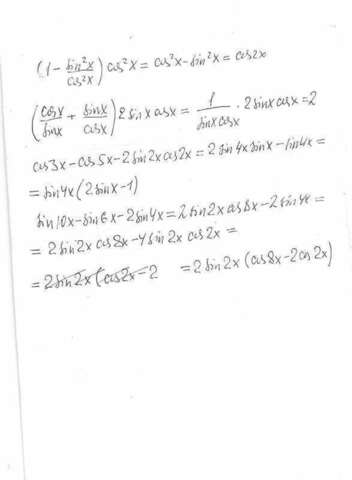 (1 - sin²x/cos²x) cos²x = cos²x - sin²x = cos2x
(cosx/sinx + sinx/cosx) 2 sinx cosx = 1/(sinx cosx) · 2sinx cosx = 2
cos3x - cos5x - 2sin2x cos2x = 2 sin4x sinx - sin4x =
= sin4x (2 sinx - 1)
sin10x - sin6x - 2sin4x = 2sin2x cos8x - 2sin4x =
= 2sin2x cos8x - 4 sin2x cos2x =
= 2sin2x (cos2x - 2 = 2 sin2x (cos8x - 2cos2x)